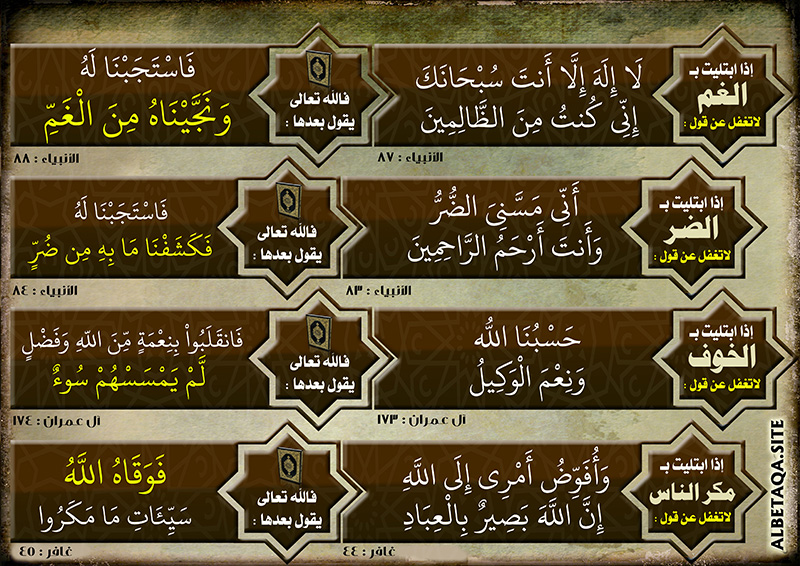 إذا ابتليت بـ
الغم
لاتغفل عن قول :
لَا إِلَهَ إِلَّا أَنتَ سُبْحَانَكَ
إِنِّي كُنتُ مِنَ الظَّالِمِينَ
الأنبياء : ٨٧
فالله تعالى
يقول بعدها :
فَاسْتَجَبْنَا لَهُ
وَنَجَّيْنَاهُ مِنَ الْغَمِّ
الأنبياء : ٨٨
إذا ابتليت بـ
الضر
لاتغفل عن قول :
أَنِّي مَسَّنِيَ الضُّرُّ
وَأَنتَ أَرْحَمُ الرَّاحِمِينَ
الأنبياء : ٨٣
فالله تعالى
يقول بعدها :
فَاسْتَجَبْنَا لَهُ
فَكَشَفْنَا مَا بِهِ مِن ضُرٍّ
الأنبياء : ٨٤
إذا ابتليت بـ
الخوف
لاتغفل عن قول :
حَسْبُنَا اللّه
وَنِعْمَ الْوَكِيلُ
آل عمران : ١٧٣
فالله تعالى
يقول بعدها :
فَانقَلَبُواْ بِنِعْمَةٍ مِّنَ اللّهِ وَفَضْلٍ
لَّمْ يَمْسَسْهُمْ سُوءٌ
آل عمران : ١٧٤
إذا ابتليت بـ
مكر الناس
لاتغفل عن قول :
وَأُفَوِّضُ أَمْرِى إِلَى اللَّهِ
إِنَّ اللَّهَ بَصِيرٌ بِالْعِبَادِ
غافر : ٤٤
فالله تعالى
يقول بعدها :
فَوَقَاهُ اللَّهُ
سَيِّئَاتِ مَا مَكَرُوا
غافر : ٤٥
ALBETAQA.SITE